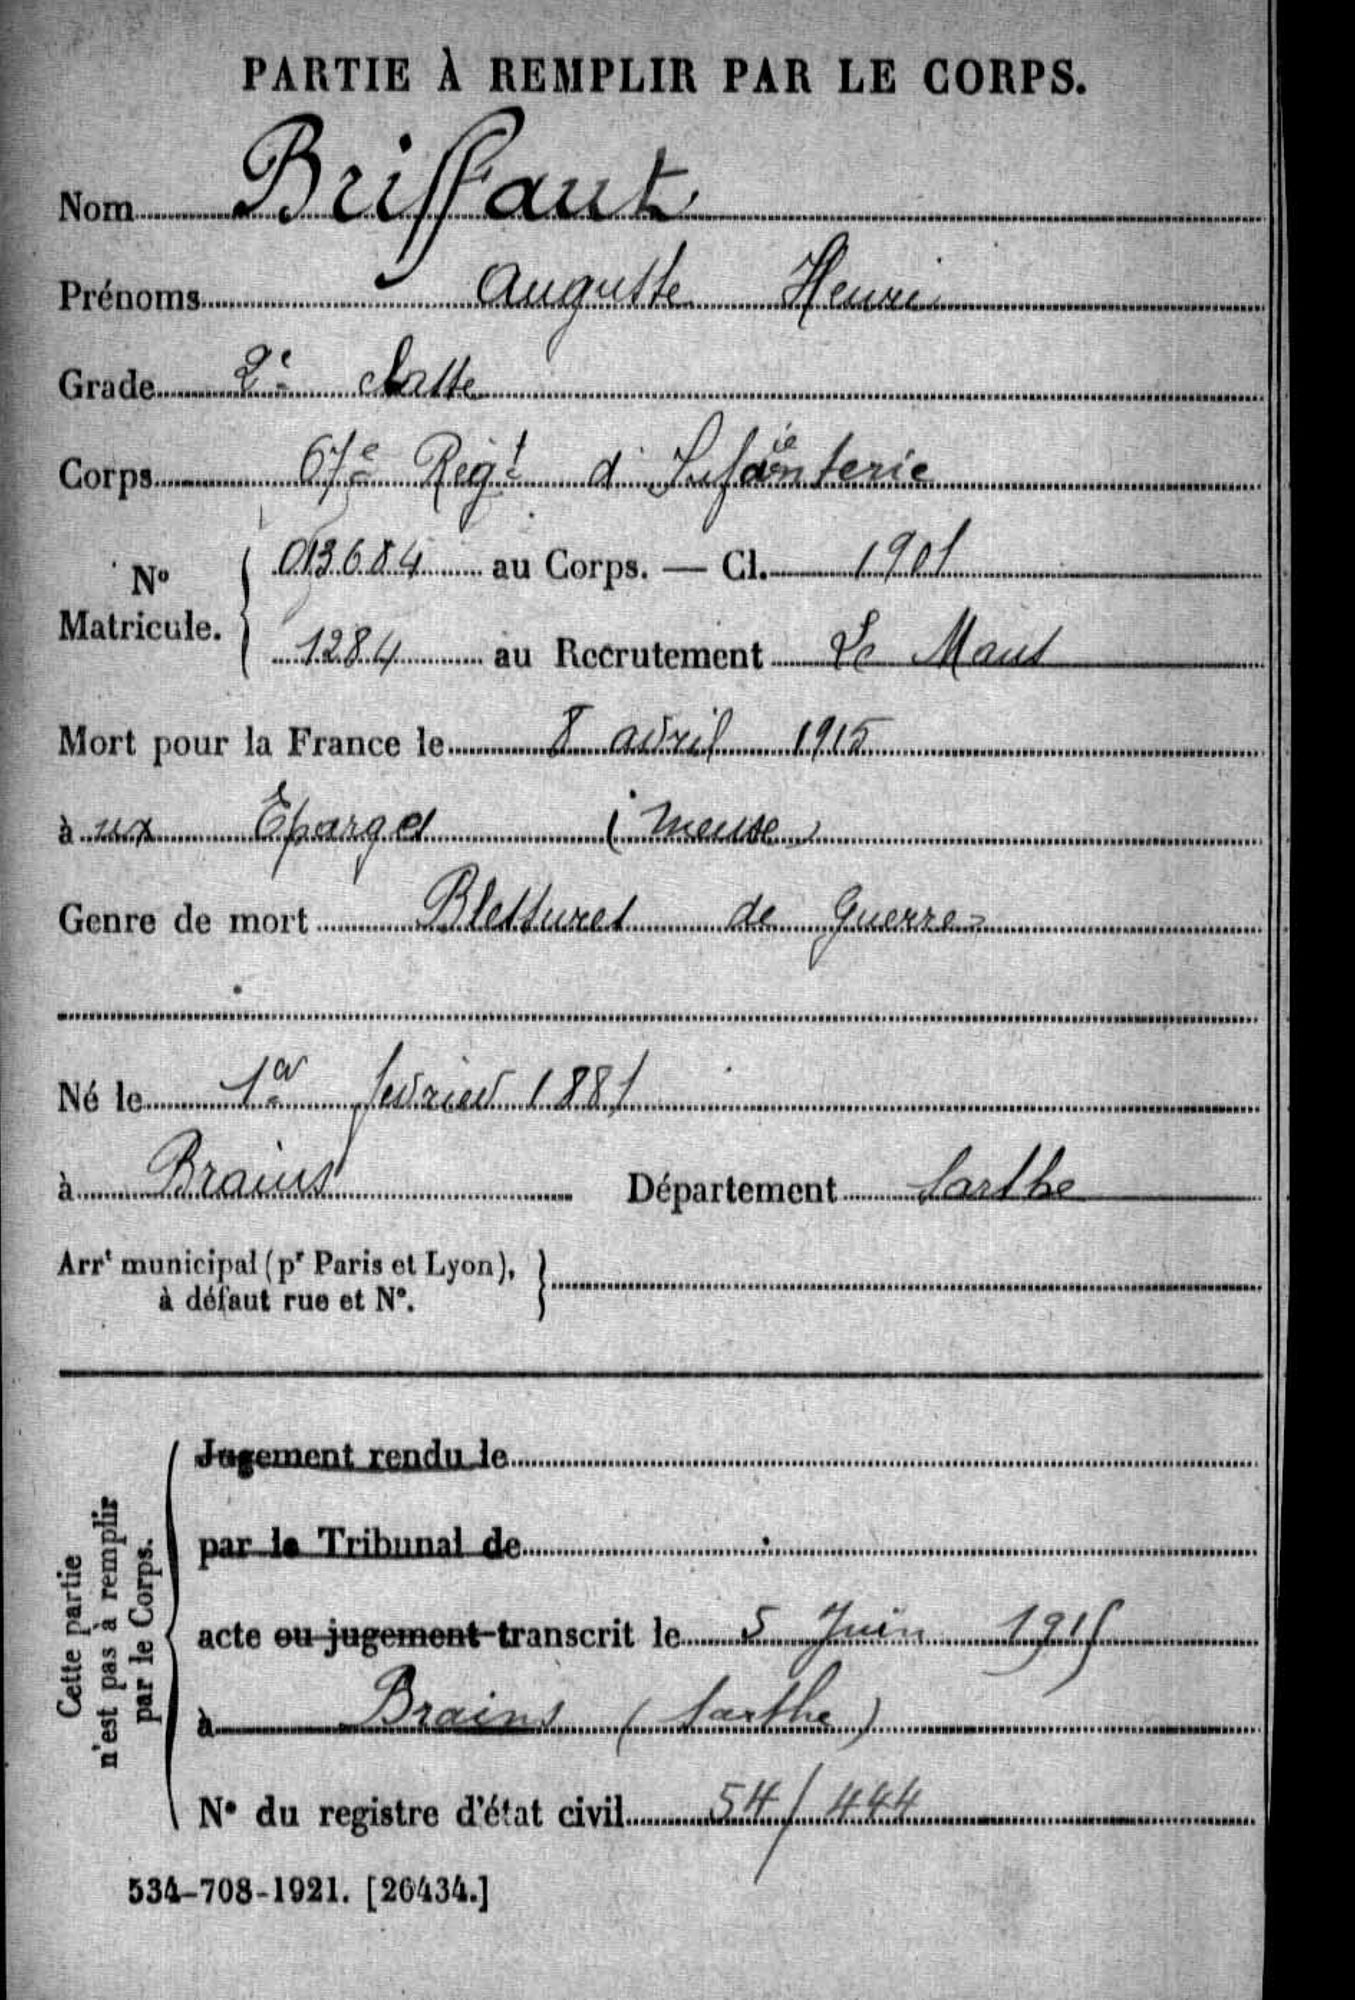 PARTIE À REMPLIR PAR LE CORPS.
Nom Briffaut
Prénoms Auguste Henri
Grade 2e classe
Corps 67e Régt d'Infanterie
No Matricule. 013684 au Corps. — Cl. 1901
1284 au Recrutement Le Mans
Mort pour la France le 8 avril 1915
à ux Eparges (Meuse)
Genre de mort Blessures de Guerre
Né le 1er fevrier 1881
à Brains Département Sarthe
Arrt municipal (pr Paris et Lyon),
à défaut rue et No.
Cette partie
n'est pas à remplir
par le Corps.
Jugement rendu le
par le Tribunal de
acte ou jugement transcrit le 5 Juin 1915
à Brains (Sarthe)
No du registre d'état civil 54/444
534-708-1921. [26434.]